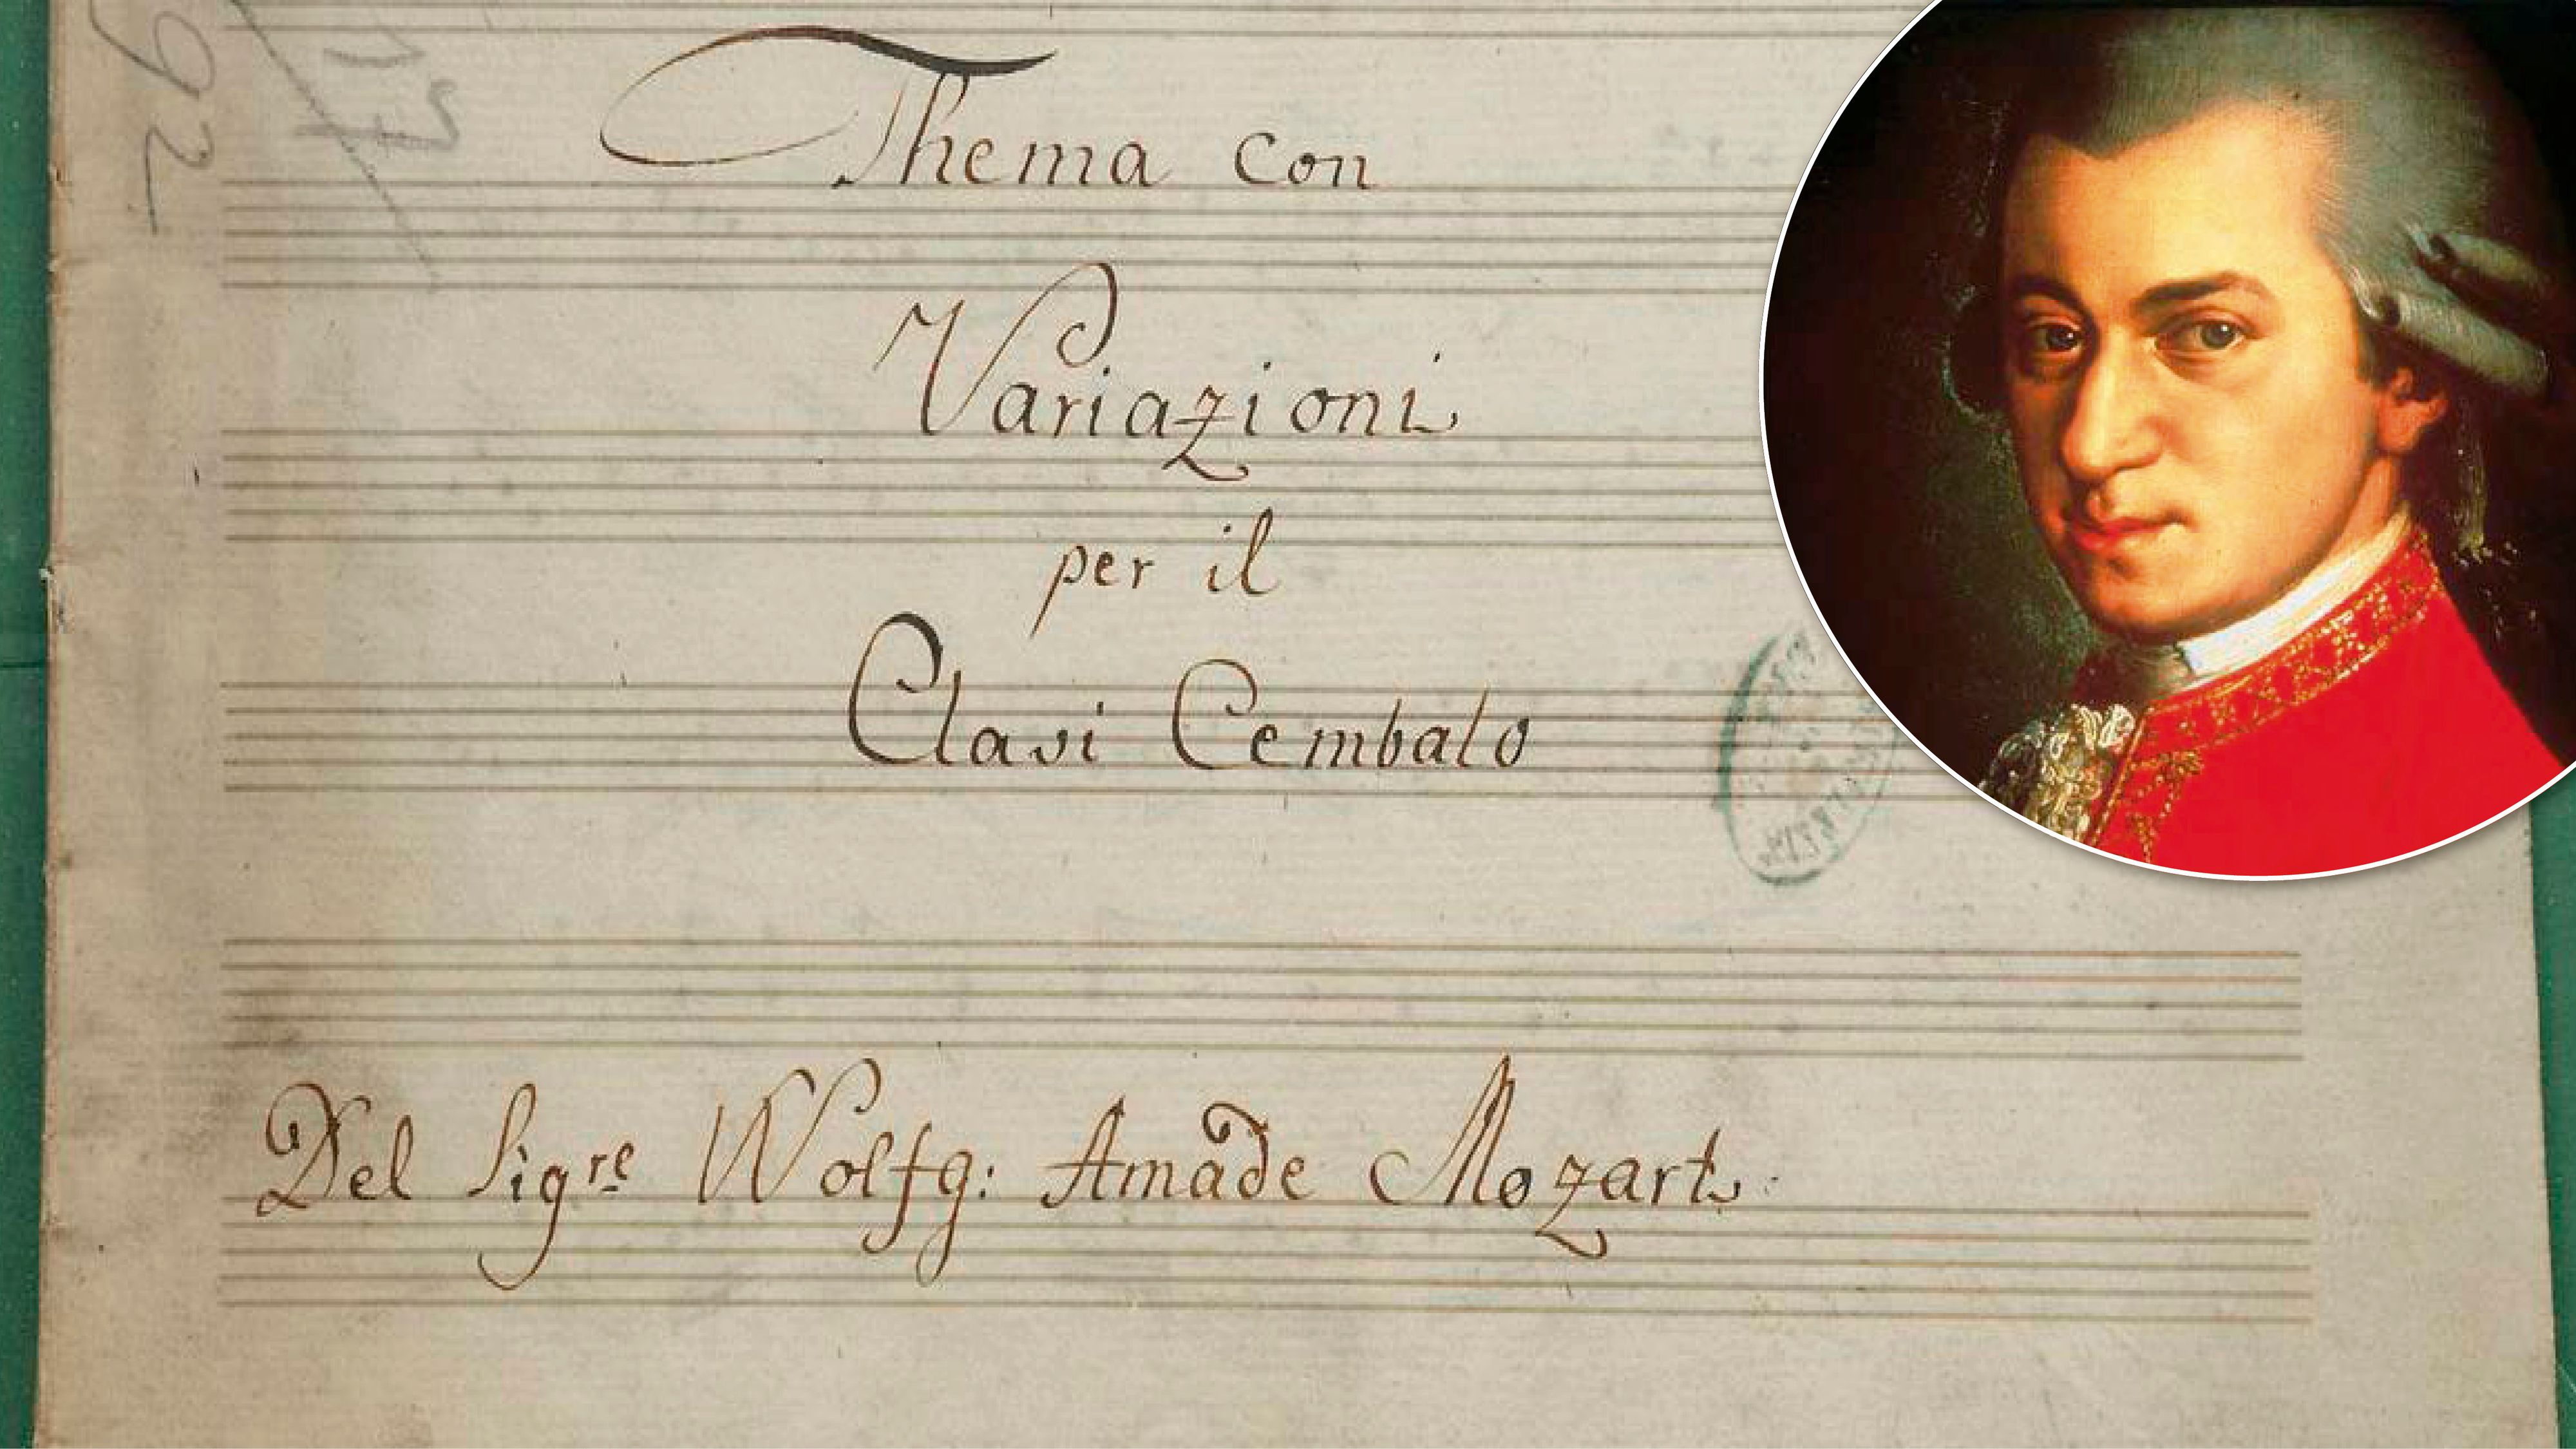 Thema con
Variazioni
per il
Clavi Cembalo
Del Sig.re Wolfg: Amade Mozart